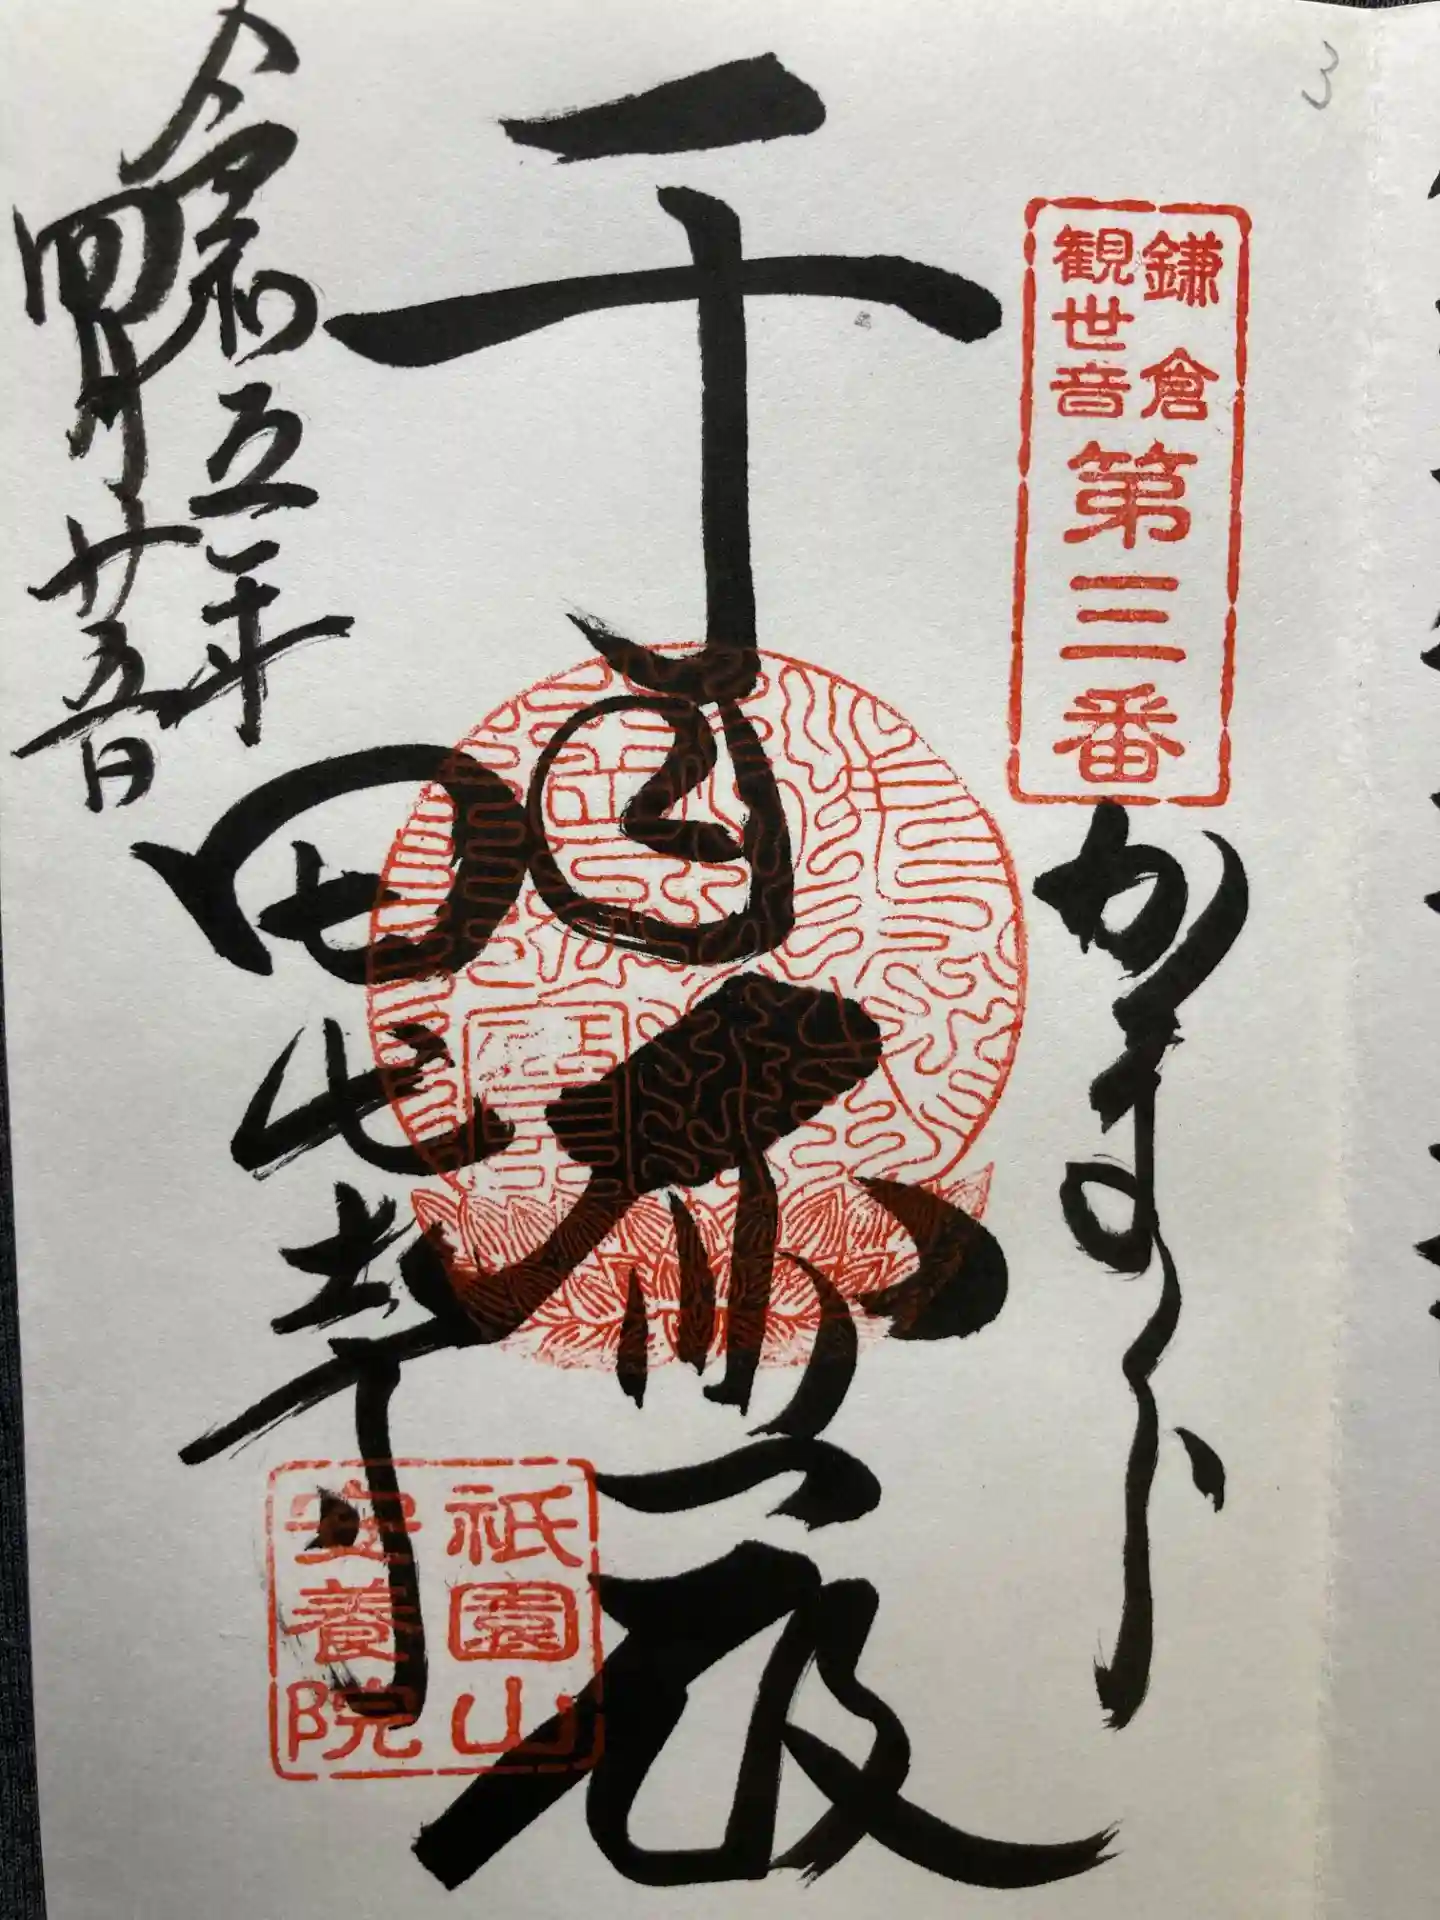 3
鎌倉
観世音
第三番
かまくら
千
殿
田代寺
祇園山
安養院
令和五年
四月廿五日